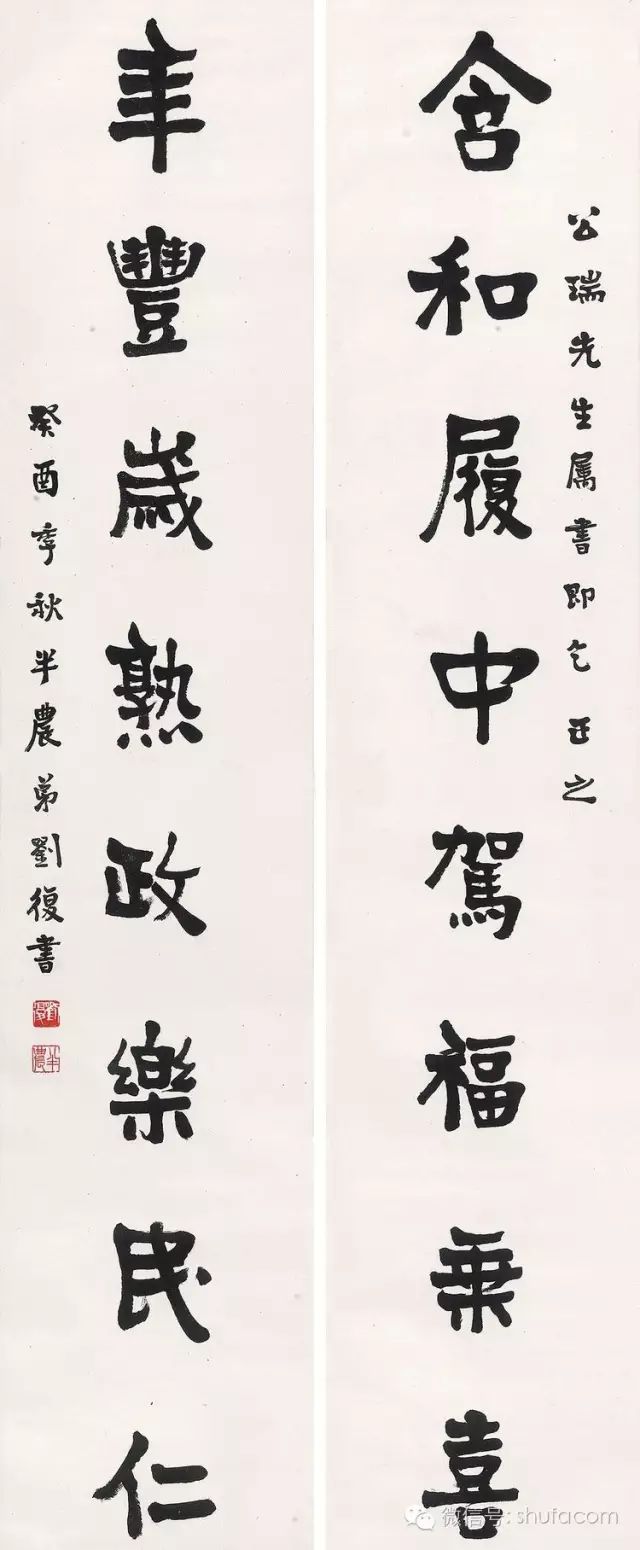 公瑞先生属书即乞正之
含和履中駕福乘喜
年豐歲熟政樂民仁
癸酉季秋半農弟劉復書
劉復
半農
微信号: shufacom